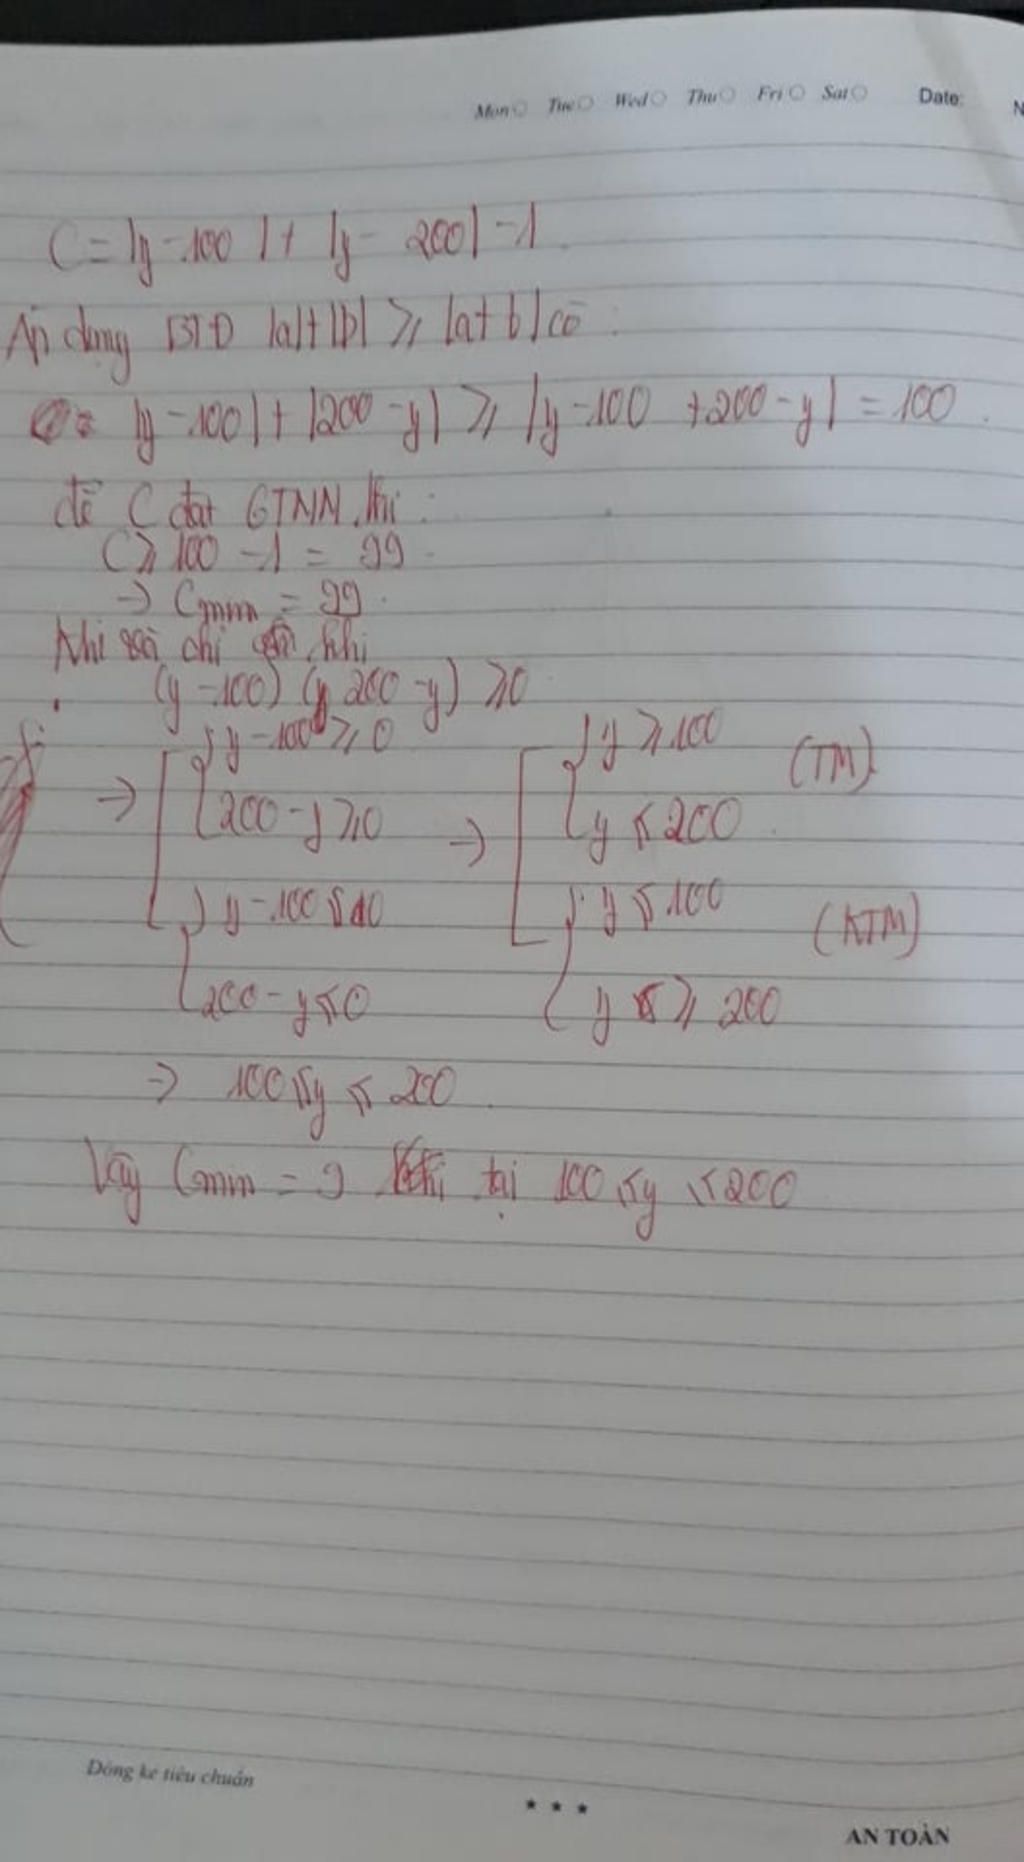 Mon Tue Wed Thu Fri Sat Date: N
C = |y - 100| + |y - 200| - 1
Áp dụng BĐT |a|+|b| ≥ |a+b| có:
|y - 100| + |200 - y| ≥ |y - 100 + 200 - y| = 100.
để C đạt GTNN thì:
C ≥ 100 - 1 = 99.
→ Cmin = 99.
Khi và chỉ khi
(y - 100) (200 - y) ≥ 0
→ [ { y - 100 ≥ 0 → [ { y ≥ 100 (TM)
200 - y ≥ 0 y ≤ 200
{ y - 100 ≤ 0 { y ≤ 100 (KTM)
200 - y ≤ 0 y ≥ 200
→ 100 ≤ y ≤ 200.
Vậy Cmin = 9 tại 100 ≤ y ≤ 200
Dòng kẻ tiêu chuẩn
★ ★ ★
AN TOÀN